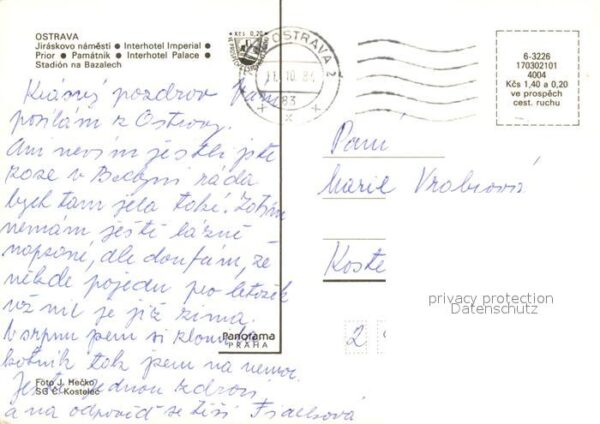 OSTRAVA
Jiráskovo náměstí ● Interhotel Imperial ●
Prior ● Památník ● Interhotel Palace ●
Stadión na Bazalech
Kčs 0,20
OSTRAVA 2
11.10.83
83
6-3226
170302101
4004
Kčs 1,40 a 0,20
ve prospěch
cest. ruchu
Krásný pozdrav Vám
posílám z Ostravy.
Ani nevím jestli jste
v ráda
bych tam jela také. Zatím
nemám ještě lázně
napsané, ale doufám, že
někde pojedu pro letošek
už nic je již zima.
V srpnu jsem si
kotník tak jsem na nemoc.
Ještě jednou zdraví
a na odpověď se těší
Paní
Marie
Koste
2
privacy protection
Datenschutz
Panorama
PRAHA
Foto J. Hečko
SČ Č. Kostelec